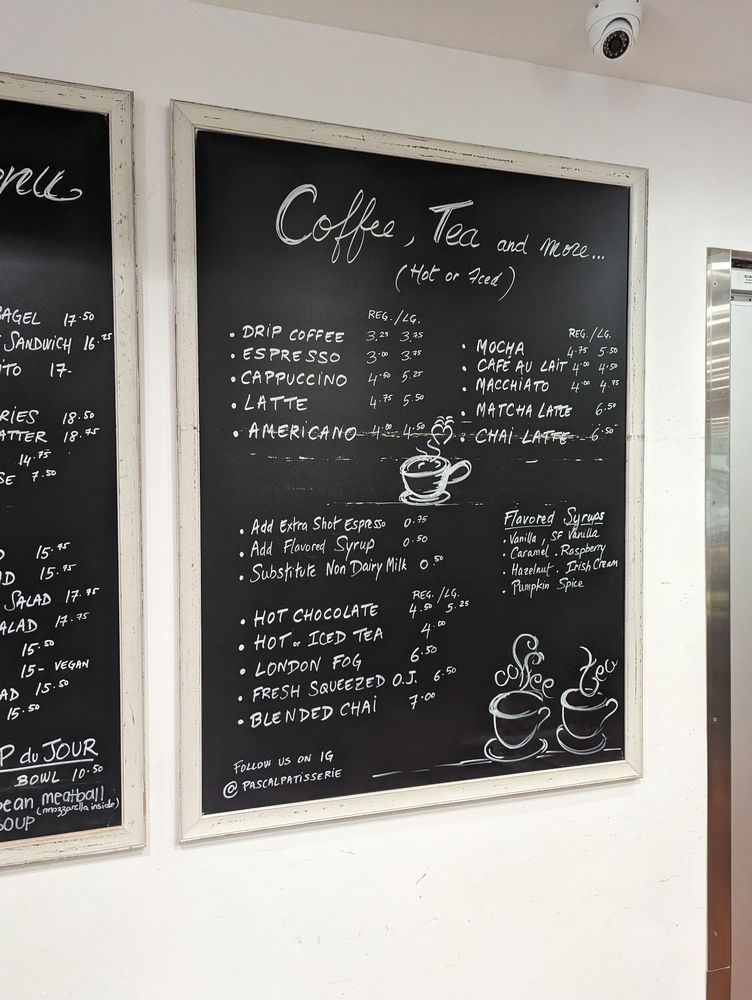 AGEL 17.50
SANDWICH 16.25
ITO 17-
RIES 18.50
ATTER 18.75
14.75
SE 7.50
15.75
D 15.75
SALAD 17.75
ALAD 17.75
15.50
15- VEGAN
AD 15.50
15.50
P du JOUR
BOWL 10.50
ean meatball
(mozzarella inside)
OUP
Coffee, Tea and more...
(Hot or Iced)
REG./LG.
• DRIP COFFEE 3.25 3.75
• ESPRESSO 3.00 3.75
• CAPPUCCINO 4.50 5.25
• LATTE 4.75 5.50
• AMERICANO 4.00 4.50
REG./LG.
• MOCHA 4.75 5.50
• CAFÉ AU LAIT 4.00 4.50
• MACCHIATO 4.00 4.75
• MATCHA LATTE 6.50
• CHAI LATTE 6.50
• Add Extra Shot Espresso 0.75
• Add Flavored Syrup 0.50
• Substitute Non Dairy Milk 0.50
Flavored Syrups
• Vanilla, SF Vanilla
• Caramel . Raspberry
• Hazelnut . Irish Cream
• Pumpkin Spice
REG./LG.
• HOT CHOCOLATE 4.50 5.25
• HOT or ICED TEA 4.00
• LONDON FOG 6.50
• FRESH SQUEEZED O.J. 6.50
• BLENDED CHAI 7.00
coffee
FOLLOW US ON IG
@PASCALPATISSERIE